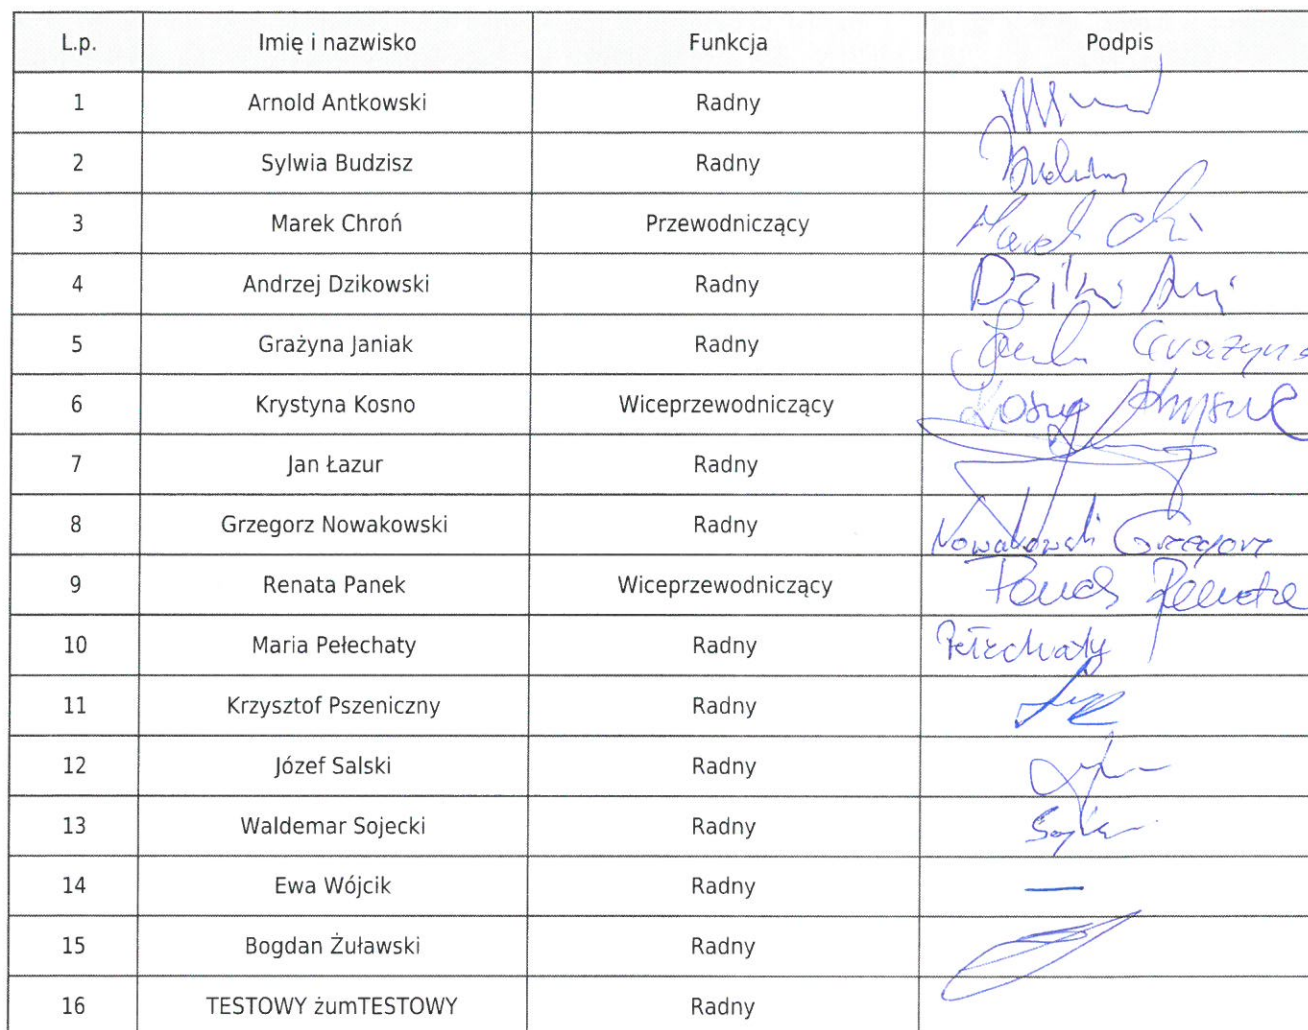 L.p. Imię i nazwisko Funkcja Podpis
1 Arnold Antkowski Radny
2 Sylwia Budzisz Radny
3 Marek Chroń Przewodniczący Marek
4 Andrzej Dzikowski Radny
5 Grażyna Janiak Radny Grażyna
6 Krystyna Kosno Wiceprzewodniczący Kosno
7 Jan Łazur Radny
8 Grzegorz Nowakowski Radny Nowakowski Grzegorz
9 Renata Panek Wiceprzewodniczący Panek Renata
10 Maria Pełechaty Radny Pełechaty
11 Krzysztof Pszeniczny Radny
12 Józef Salski Radny
13 Waldemar Sojecki Radny
14 Ewa Wójcik Radny —
15 Bogdan Żuławski Radny
16 TESTOWY żumTESTOWY Radny